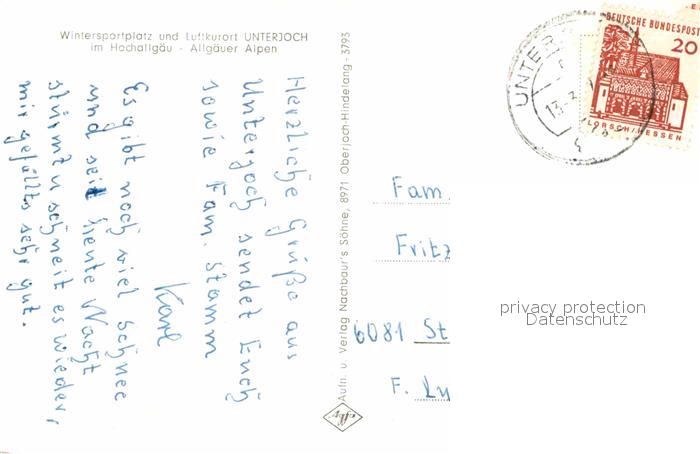 Wintersportplatz und Luftkurort UNTERJOCH
im Hochallgäu - Allgäuer Alpen
Herzliche Grüße aus
Unterjoch sendet Euch
sowie Fam. Stamm
Karl
Es gibt noch viel Schnee
und seit heute Nacht
stürmt u schneit es wieder,
mir gefällts sehr gut.
Aufn. u. Verlag Nachbaur's Söhne, 8971 Oberjoch-Hindelang - 3793
DEUTSCHE BUNDESPOST
20
LORSCH/HESSEN
UNTER
13.-3.
Fam.
Fritz
6081 St
F. Lu
privacy protection
Datenschutz